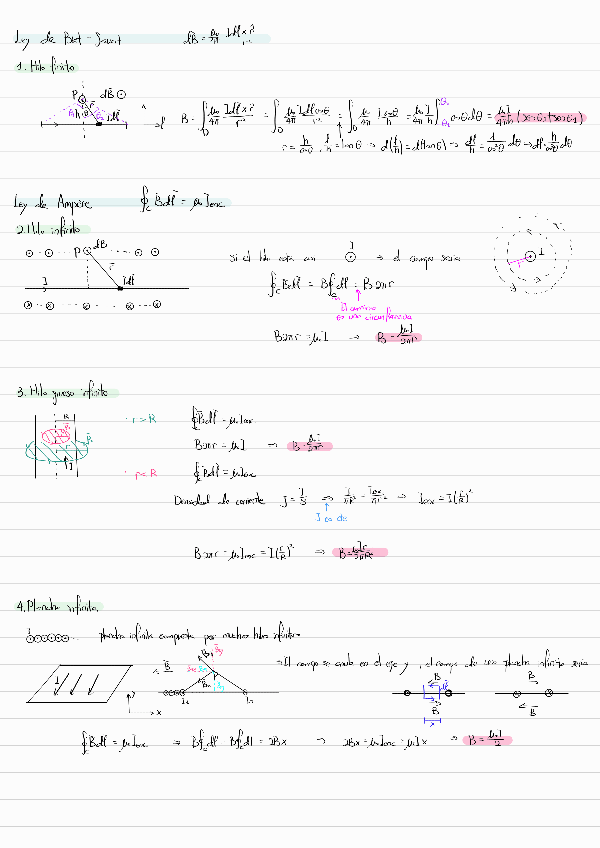 Ley de Biot-Savart dB = μ₀/4π Idl × r̂/r²
1. Hilo finito
P dB ⊙
h θ r Idl
l
B = ∫ μ₀/4π Idl × r̂/r² = ∫ μ₀/4π Idl cosθ/r² = ∫ μ₀/4π I cosθ/h = μ₀/4π I/h ∫ cosθ dθ = μ₀I/4πh (senθ₂ + senθ₁)
r = h/cosθ , l/h = tanθ → d(l/h) = d(tanθ) → dl/h = 1/cos²θ dθ → dl = h/cos²θ dθ
Ley de Ampère ∮c B dl = μ₀ Ienc
2. Hilo infinito
P dB
r
I Idl
Si el hilo está en I ⊙ → el campo sería
∮c B dl = B ∮c dl = B 2πr
El camino
es una circunferencia
B 2πr = μ₀I → B = μ₀I/2πr
3. Hilo grueso infinito
R
r
I
· r > R ∮c B dl = μ₀ Ienc
B 2πr = μ₀I ⇒ B = μ₀I/2πr
· r < R ∮c B dl = μ₀ Ienc
Densidad de corriente J = I/S ⇒ I/πR² = Ienc/πr² ⇒ Ienc = I(r/R)²
J es cte
B 2πr = μ₀ Ienc = I(r/R)² ⇒ B = μ₀Ir/2πR²
4. Plancha infinita
plancha infinita compuesta por muchos hilos infinitos
⇒ El campo se anula en el eje y, el campo de una plancha infinita sería
I
B
y
x
P
B
B
B
B
x
∮c B dl = μ₀ Ienc ⇒ B ∮c dl B ∮c dl = 2Bx ⇒ 2Bx = μ₀ Ienc = μ₀ I x ⇒ B = μ₀I/2